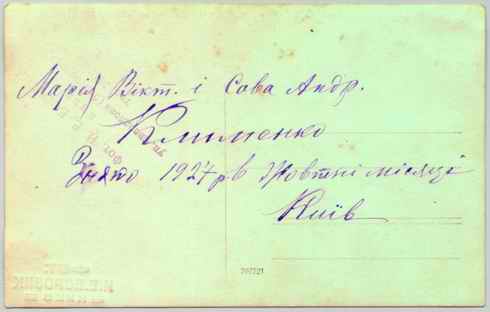 Марія Вікт. і Сова Андр.
Клименко
Знято 1927 р в Жовтні місяці
Київ